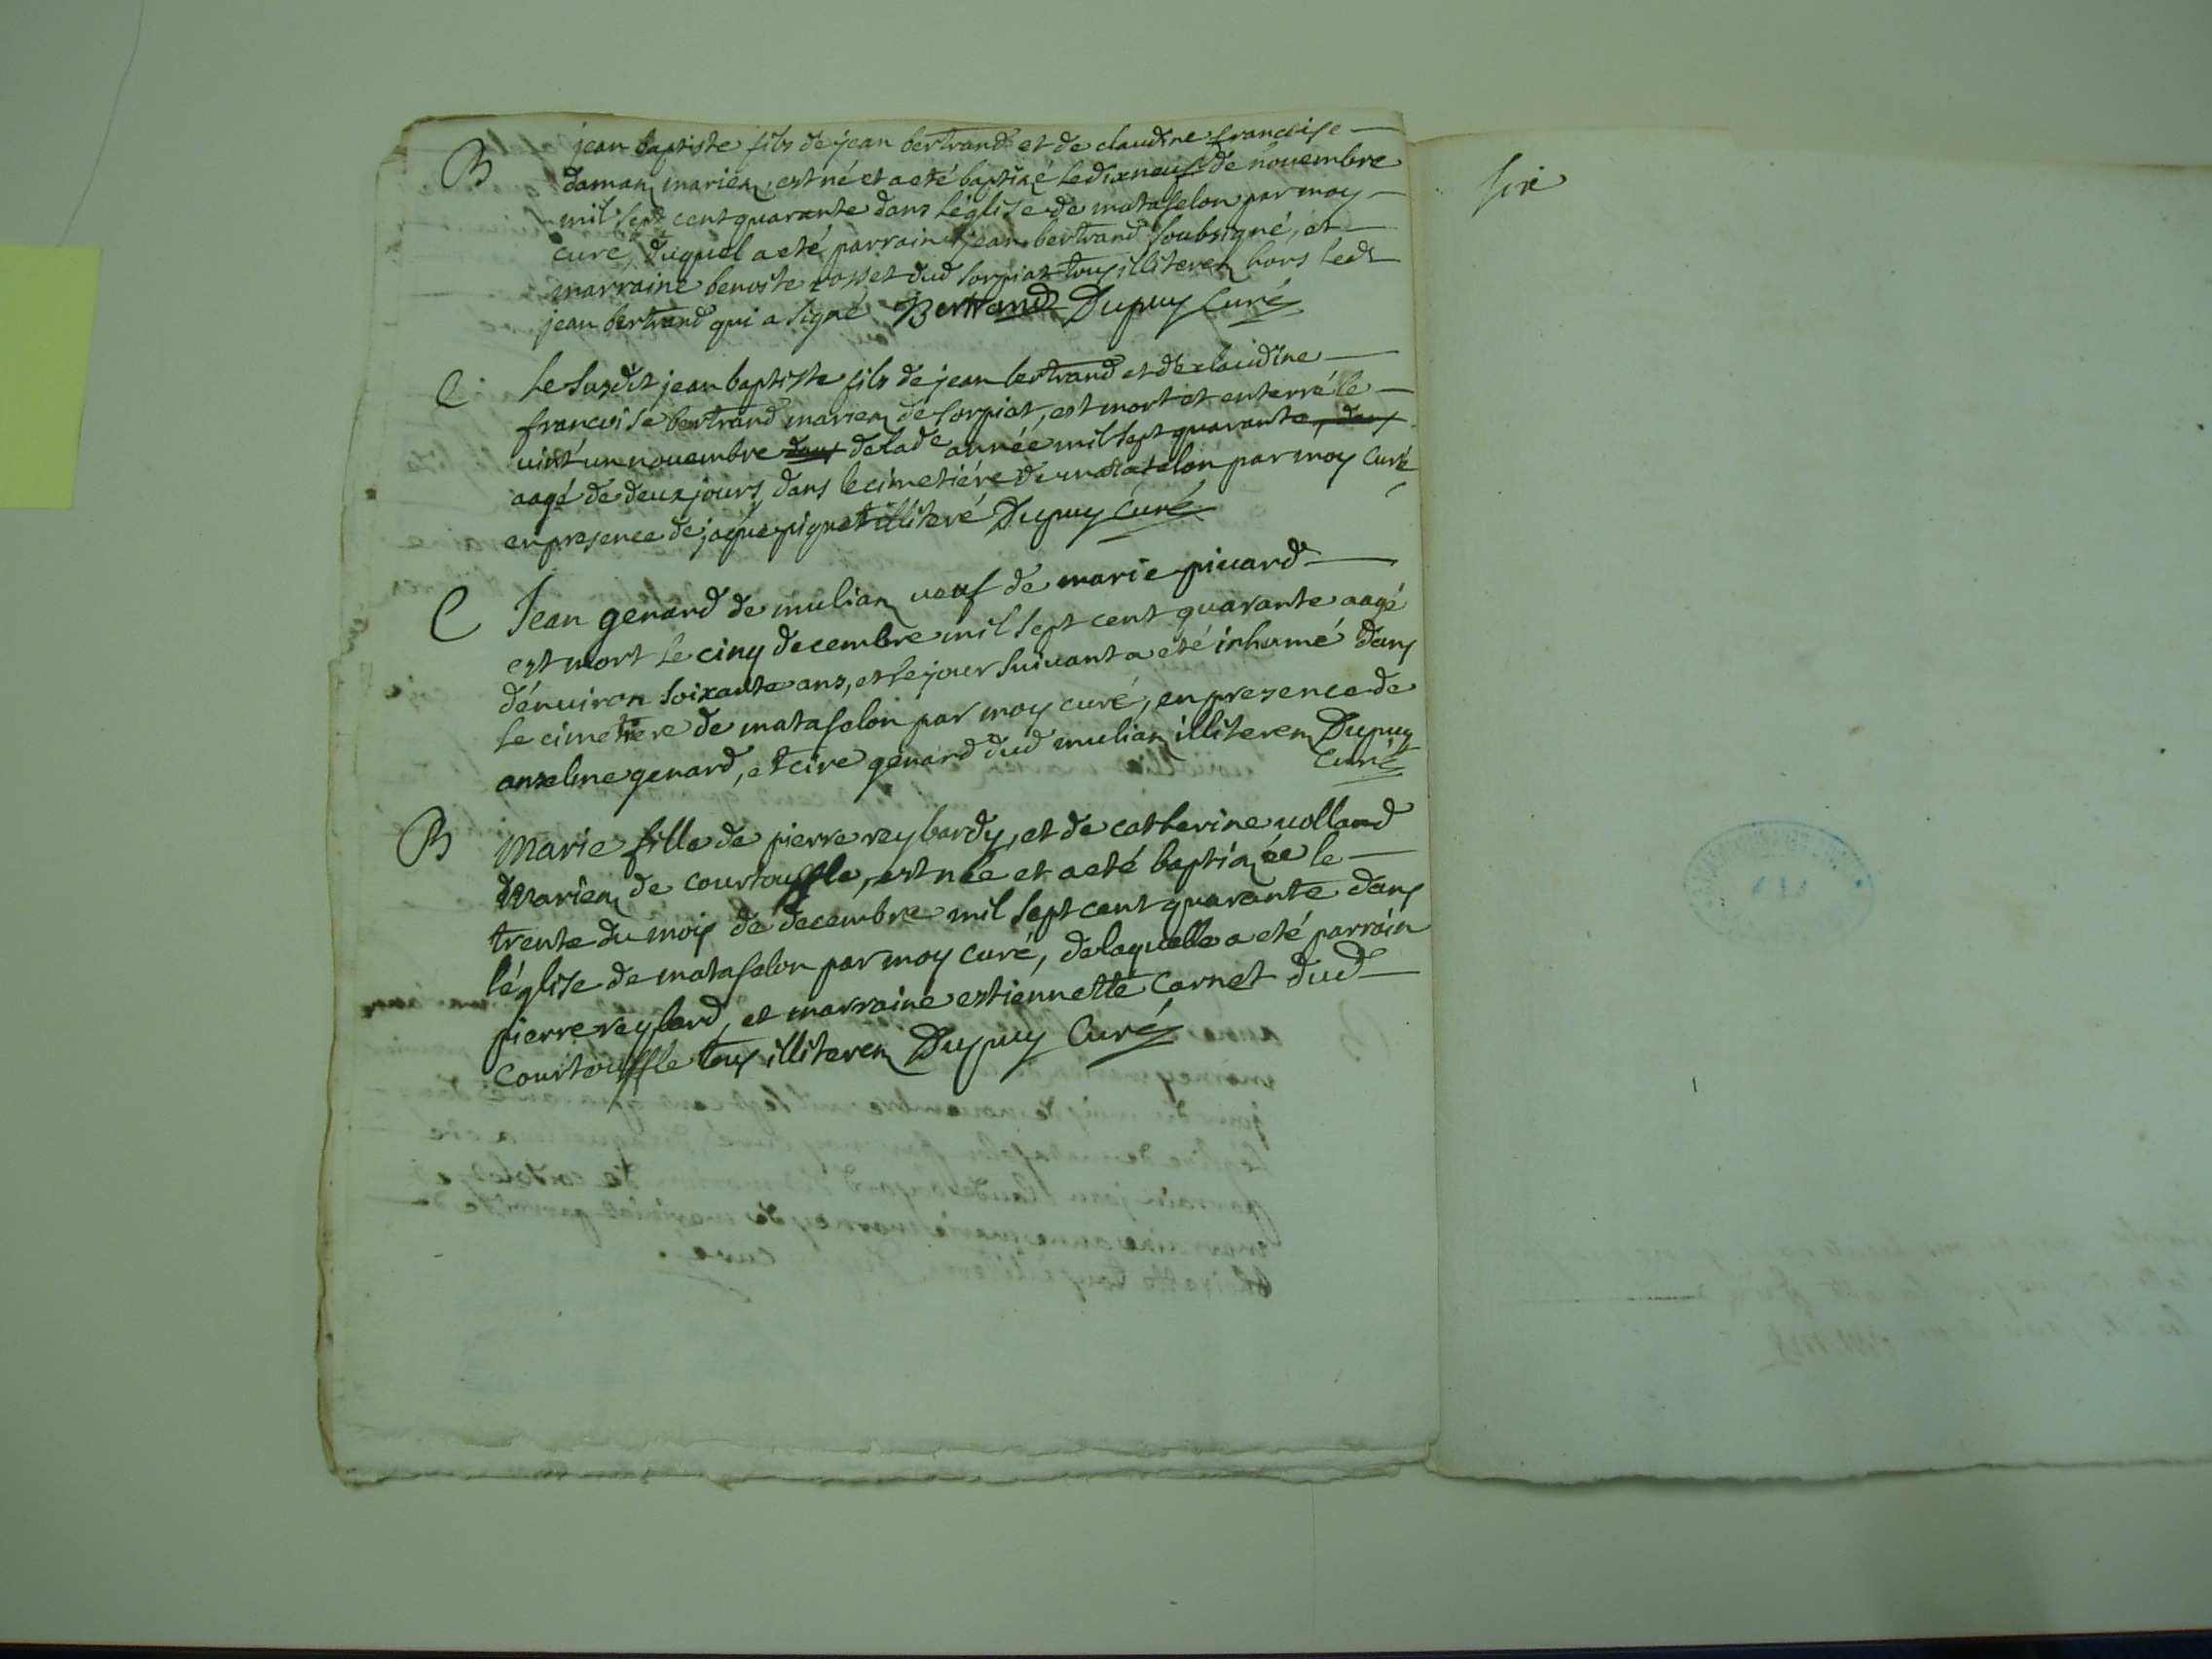 B jean baptiste fils de jean bertrand et de claudine francoise
daman mariez, est né et a eté baptizé le dixneuf de nouembre
mil sept cent quarante dans l'église de matafelon par moy
curé, duquel a eté parrain jean bertrand soubsigné, et
marraine benoite rosset dud sorpiat tous illiterez hors led
jean bertrand qui a signé Bertrand Dupuy Curé
C Le susdit jean baptiste fils de jean bertrand et de claudine
francoise bertrand mariez de sorpiat, est mort et enterré le
vint un nouembre dans de lade année mil sept quarante, dans
aagé de deux jours, dans le cimetiére de matafelon par moy Curé
en presence de jaque pignet illiteré Dupuy Curé
C Jean genard de mulian veuf de marie pivard
est mort le cinq decembre mil sept cent quarante aagé
d'énviron soixante ans, et le jour suivant a eté inhumé dans
le cimetiere de matafelon par moy curé, en presence de
anselme genard, et cire genard dud mulian illiterez Dupuy
Curé
B Marie fille de pierre reybardy, et de catherine volland
mariez de courtouffle, est née et a eté baptizée le
trente du mois de decembre mil sept cent quarante dans
l'église de matafelon par moy curé, de laquelle a eté parrain
pierre reybard, et marraine estiennette Carnet dud
Courtouffle tous illiterez Dupuy Curé
six